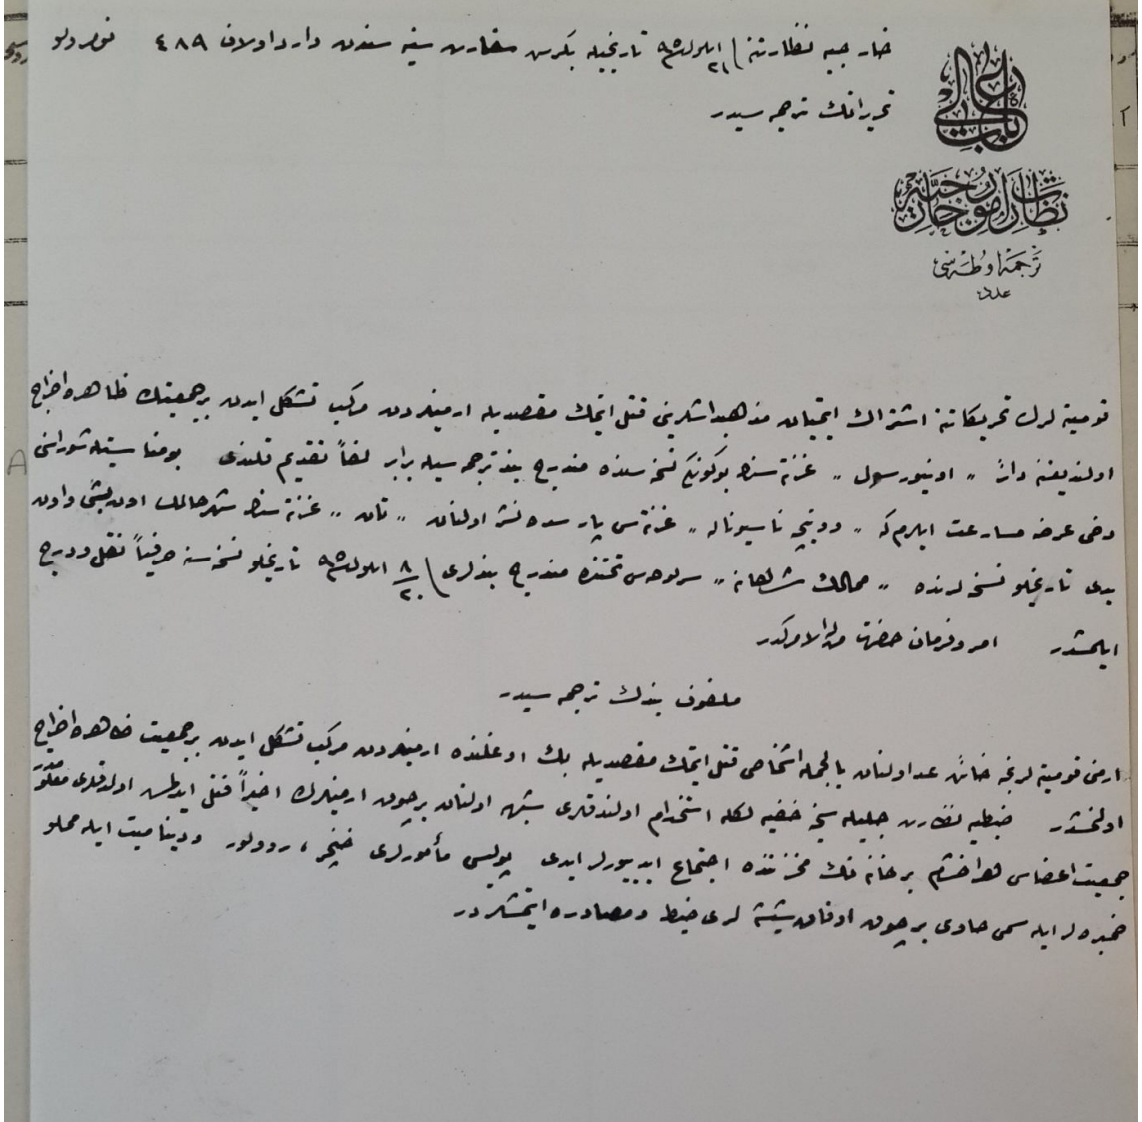 باب عالی
نظارت امور خارجیه
ترجمه اوطه سی
عدد
خارجیه نظارتنه ٢١ ایلول ٩٥ تاریخیله بکرش سفارت سنیه سندن وارد اولان ٤٨٩ نومرولو
تحریراتک ترجمه سیدر
قومیته لرک تحریکاتنه اشتراک ایتمیان مذهبداشلرینی قتل ایتمک مقصدیله ارمنیلردن مرکب تشکل ایدن بر جمعیتک ظاهره اخراج
اولندیغنه دائر " اونیورسول " غزته سنک بوکونکی نسخه سنده مندرج بند ترجمه سیله برابر لفاً تقدیم قلندی بو مناسبتله شوراسنی
دخی عرضه مسارعت ایلرم که " ووینچه ناسیوناله " غزته سی پارسده نشر اولنان " تان " غزته سنک شهر حالک اون بشی و اون
یدی تاریخلو نسخه لرنده " ممالک شاهانه " سرلوحه سی تحتنده مندرج بندلری ٨/٢٠ ایلول ٩٥ تاریخلو نسخه سنه حرفیاً نقل و درج
ایلمشدر امر و فرمان حضرت من له الامرکدر
ملفوف بندک ترجمه سیدر
ارمنی قومیته لرنجه خائن عد اولنان بالجمله اشخاصی قتل ایتمک مقصدیله بک اوغلنده ارمنیلردن مرکب تشکل ایدن بر جمعیت ظاهره اخراج
اولنمشدر ضبطیه نظارت جلیله سنجه خفیه لکله استخدام اولندقلری شبهه اولنان برچوق ارمنیلرک اخیراً قتل ایدلمش اولدقلری معلومدر
جمعیت اعضاسی هر اخشام بر خانه نک مخزننده اجتماع ایدییورلر ایدی پولیس مأمورلری خنجر ، روولور و دینامیت ایله مملو
خمبره لر ایله سمی حاوی بر چوق اوفاق شیشه لری ضبط و مصادره ایتمشلردر